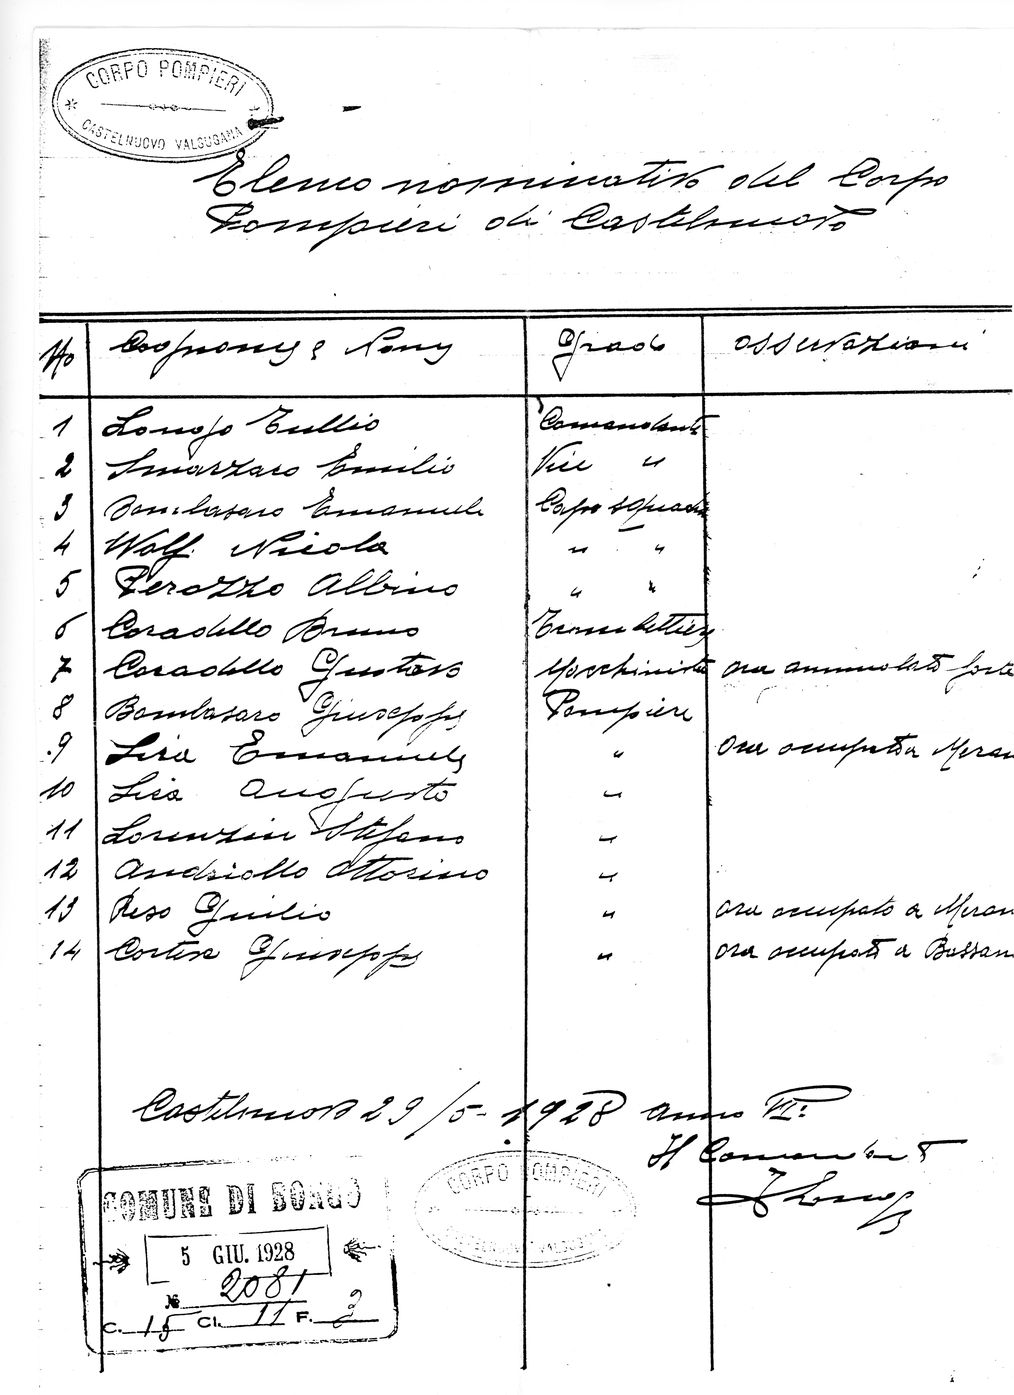 CORPO POMPIERI
CASTELNUOVO VALSUGANA
Elenco nominativo del Corpo
Pompieri di Castelnuovo
No Cognome e Nome Grado Osservazioni
1 Longo Tullio Comandante
2 Smarzaro Emilio Vice "
3 Bombasaro Emanuele Capo squadra
4 Wolf Nicola " "
5 Perozzo Albino " "
6 Coradello Bruno Trombettiere
7 Coradello Gustavo Macchinista ora ammalato forte
8 Bombasaro Giuseppe Pompiere
9 Lira Emanuele " ora occupato a Meran
10 Lira Augusto "
11 Lorenzin Stefano "
12 Andriollo Ottorino "
13 Peso Giulio " ora occupato a Meran
14 Cortese Giuseppe " ora occupato a Bassan
Castelnuovo 29/5-1928 anno VI:
Il Comandant
T Longo
CORPO POMPIERI
CASTELNUOVO VALSUGANA
COMUNE DI BORGO
5 GIU. 1928
№ 2081
C. 15 Cl. 11 F. 3